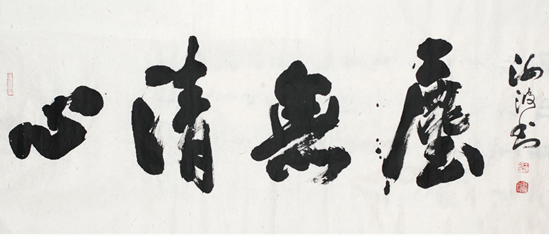 心清無塵
汝波书